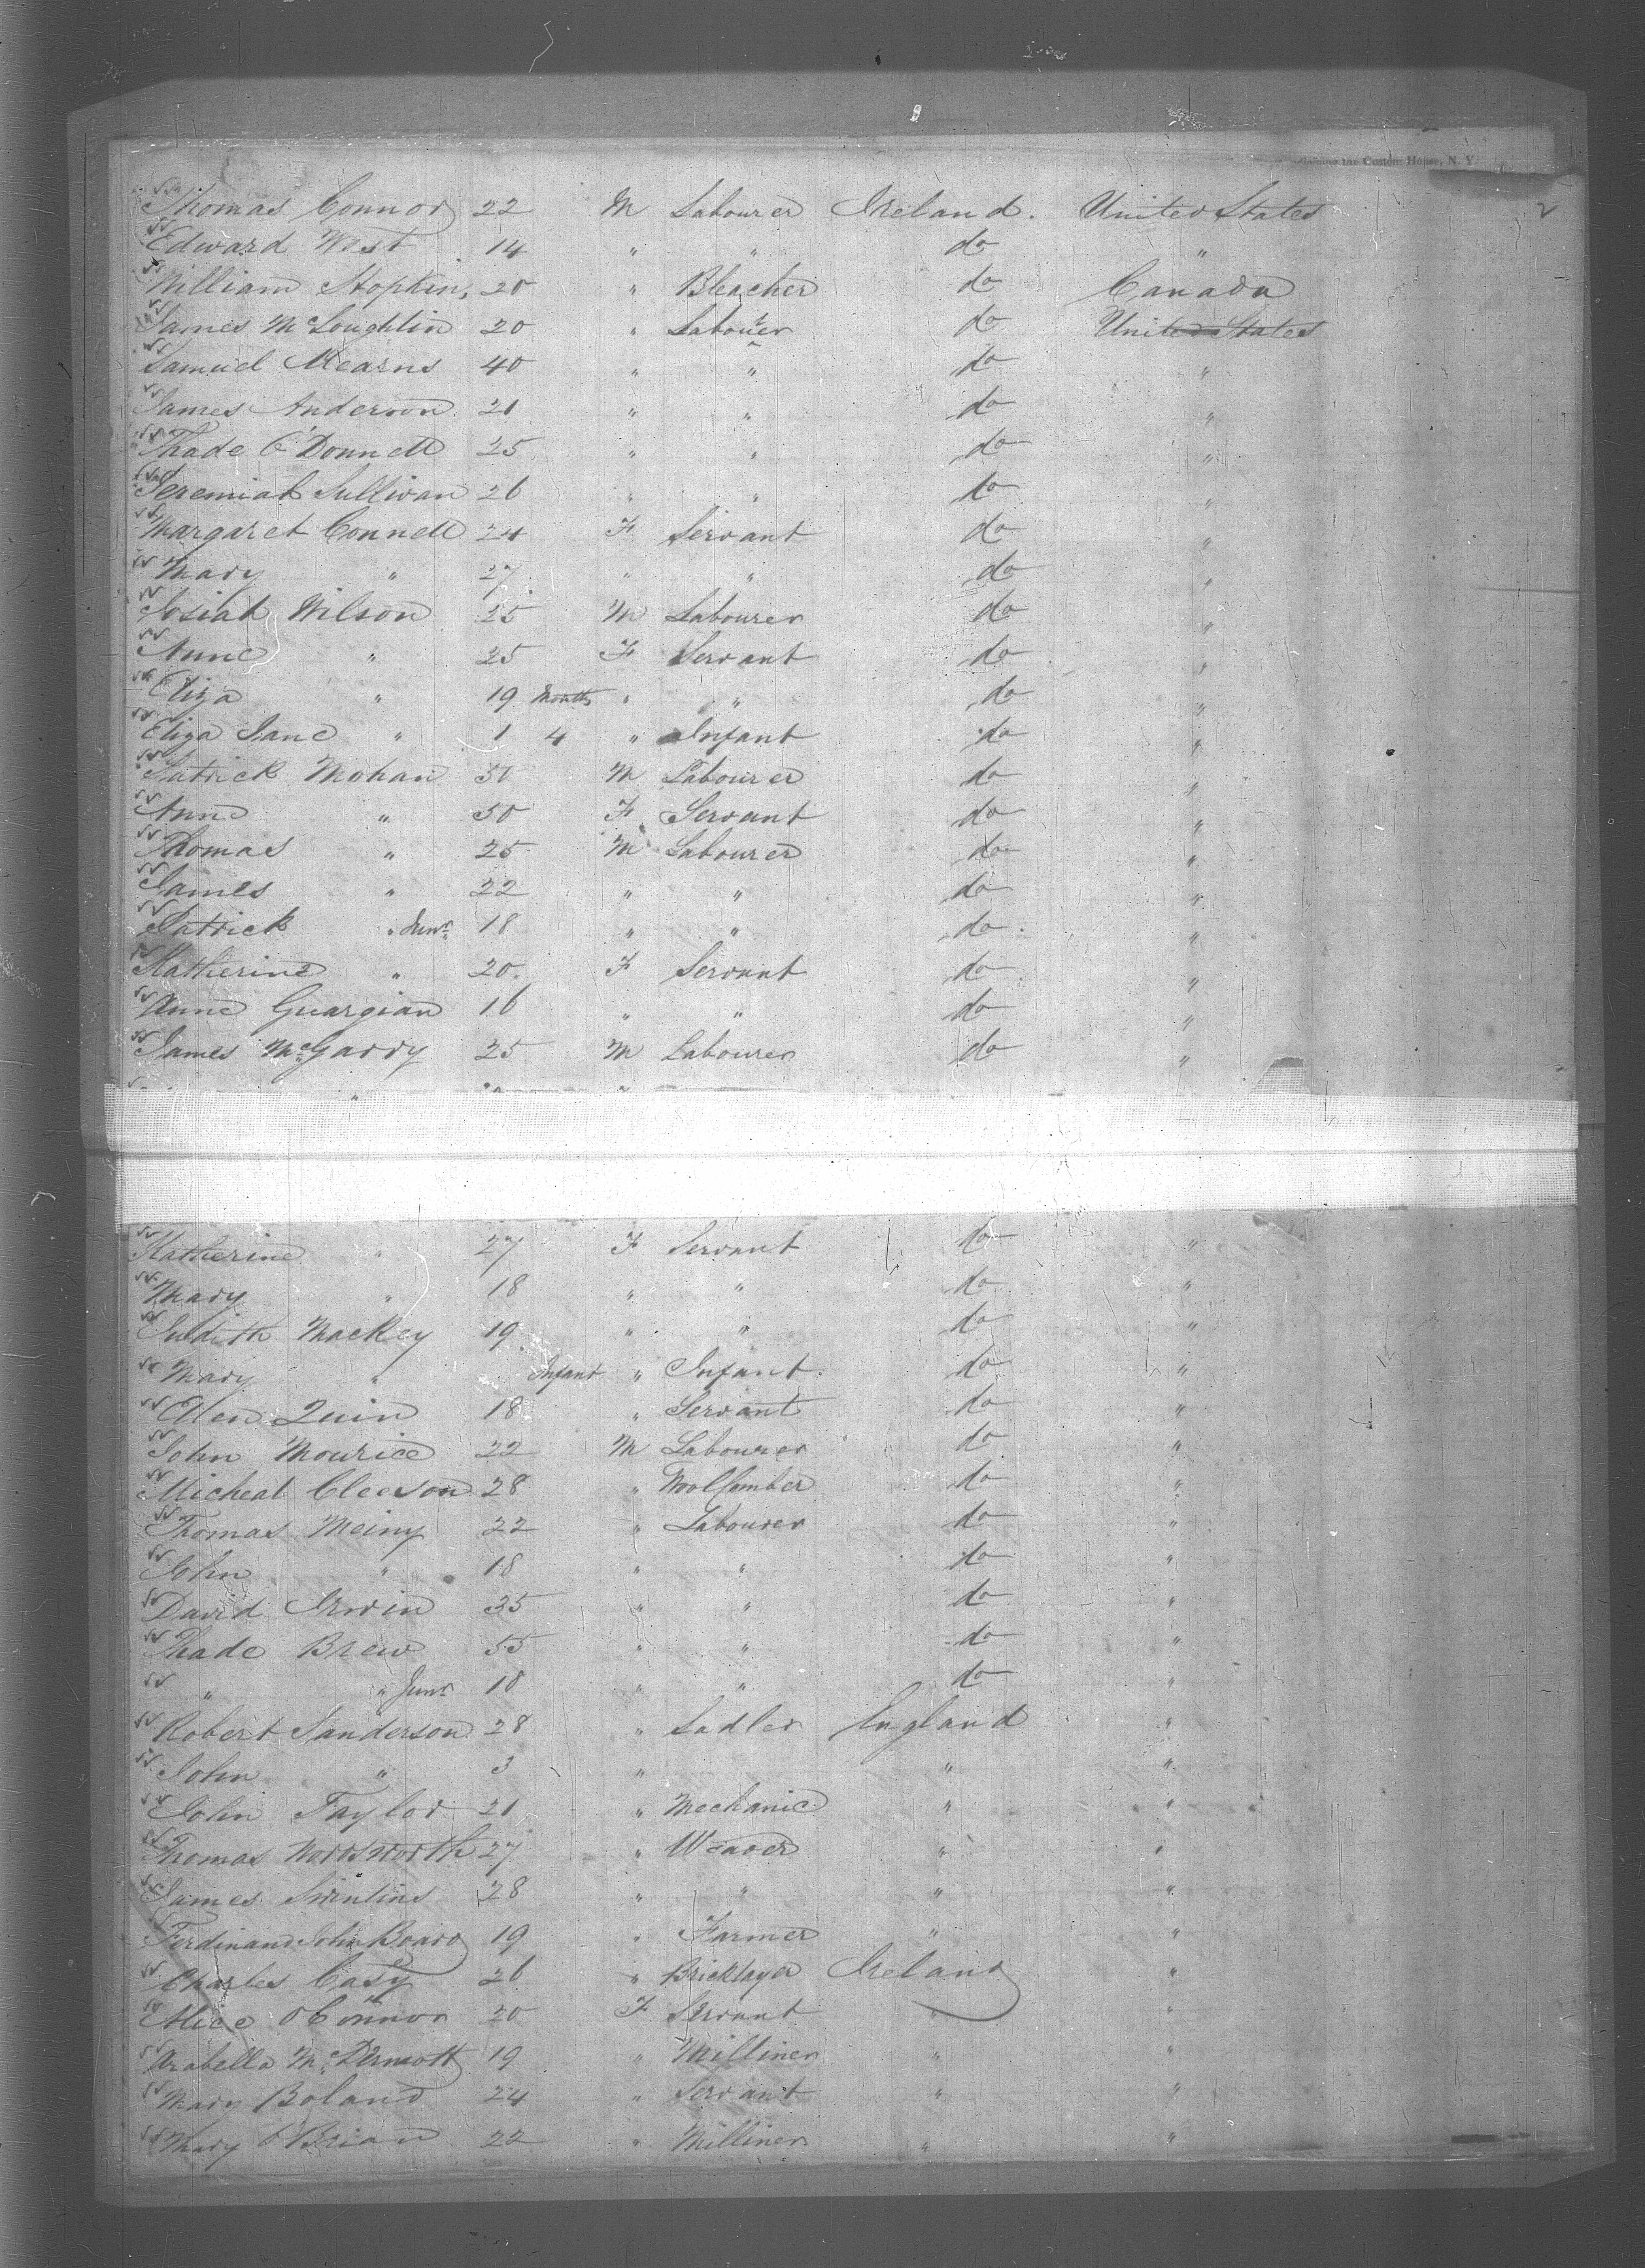 adjoining the Custom House, N. Y.
2
Thomas Connor 22 M Labourer Ireland. United States
Edward West 14 " " do "
William Hopkins 20 " Bleacher do Canada
James McLoughlin 20 " Labourer do United States
Samuel Mearns 40 " " do "
James Anderson 21 " " do "
Thade O'Donnell 25 " " do "
Jeremiah Sullivan 26 " " do "
Margaret Connell 24 F Servant do "
Mary " 27 " " do "
Josiah Wilson 25 M Labourer do "
Anne " 25 F Servant do "
Eliza " 19 Months " " do "
Eliza Jane " 1 4 " Infant do "
Patrick Mohan 50 M Labourer do "
Anne " 50 F Servant do "
Thomas " 25 M Labourer do "
James " 22 " " do "
Patrick " Junr 18 " " do "
Katherine " 20 F Servant do "
Anne Guargian 16 " " do "
James McGarry 25 M Labourer do "
"
Katherine " 27 F Servant do "
Mary " 18 " " do "
Judith Mackey 19 " " do "
Mary " Infant " Infant do "
Ellen Quin 18 " Servant do "
John Mourice 22 M Labourer do "
Micheal Cleeson 28 " Woolcomber do "
Thomas Meiny 22 " Labourer do "
John " 18 " " do "
David Irwin 35 " " do "
Thade Brew 55 " " do "
" " Junr 18 " " do "
Robert Sanderson 28 " Sadler England "
John " 3 " " "
John Taylor 21 " Mechanic " "
Thomas Wordsworth 27 " Weaver " "
James 28 " " " "
Ferdinand John Board 19 " Farmer " "
Charles Casy 26 " Bricklayer Ireland "
Alice O'Connor 20 F Servant " "
Arabella McDermott 19 " Milliner " "
Mary Boland 24 " Servant " "
Mary O'Brian 22 " Milliner " "